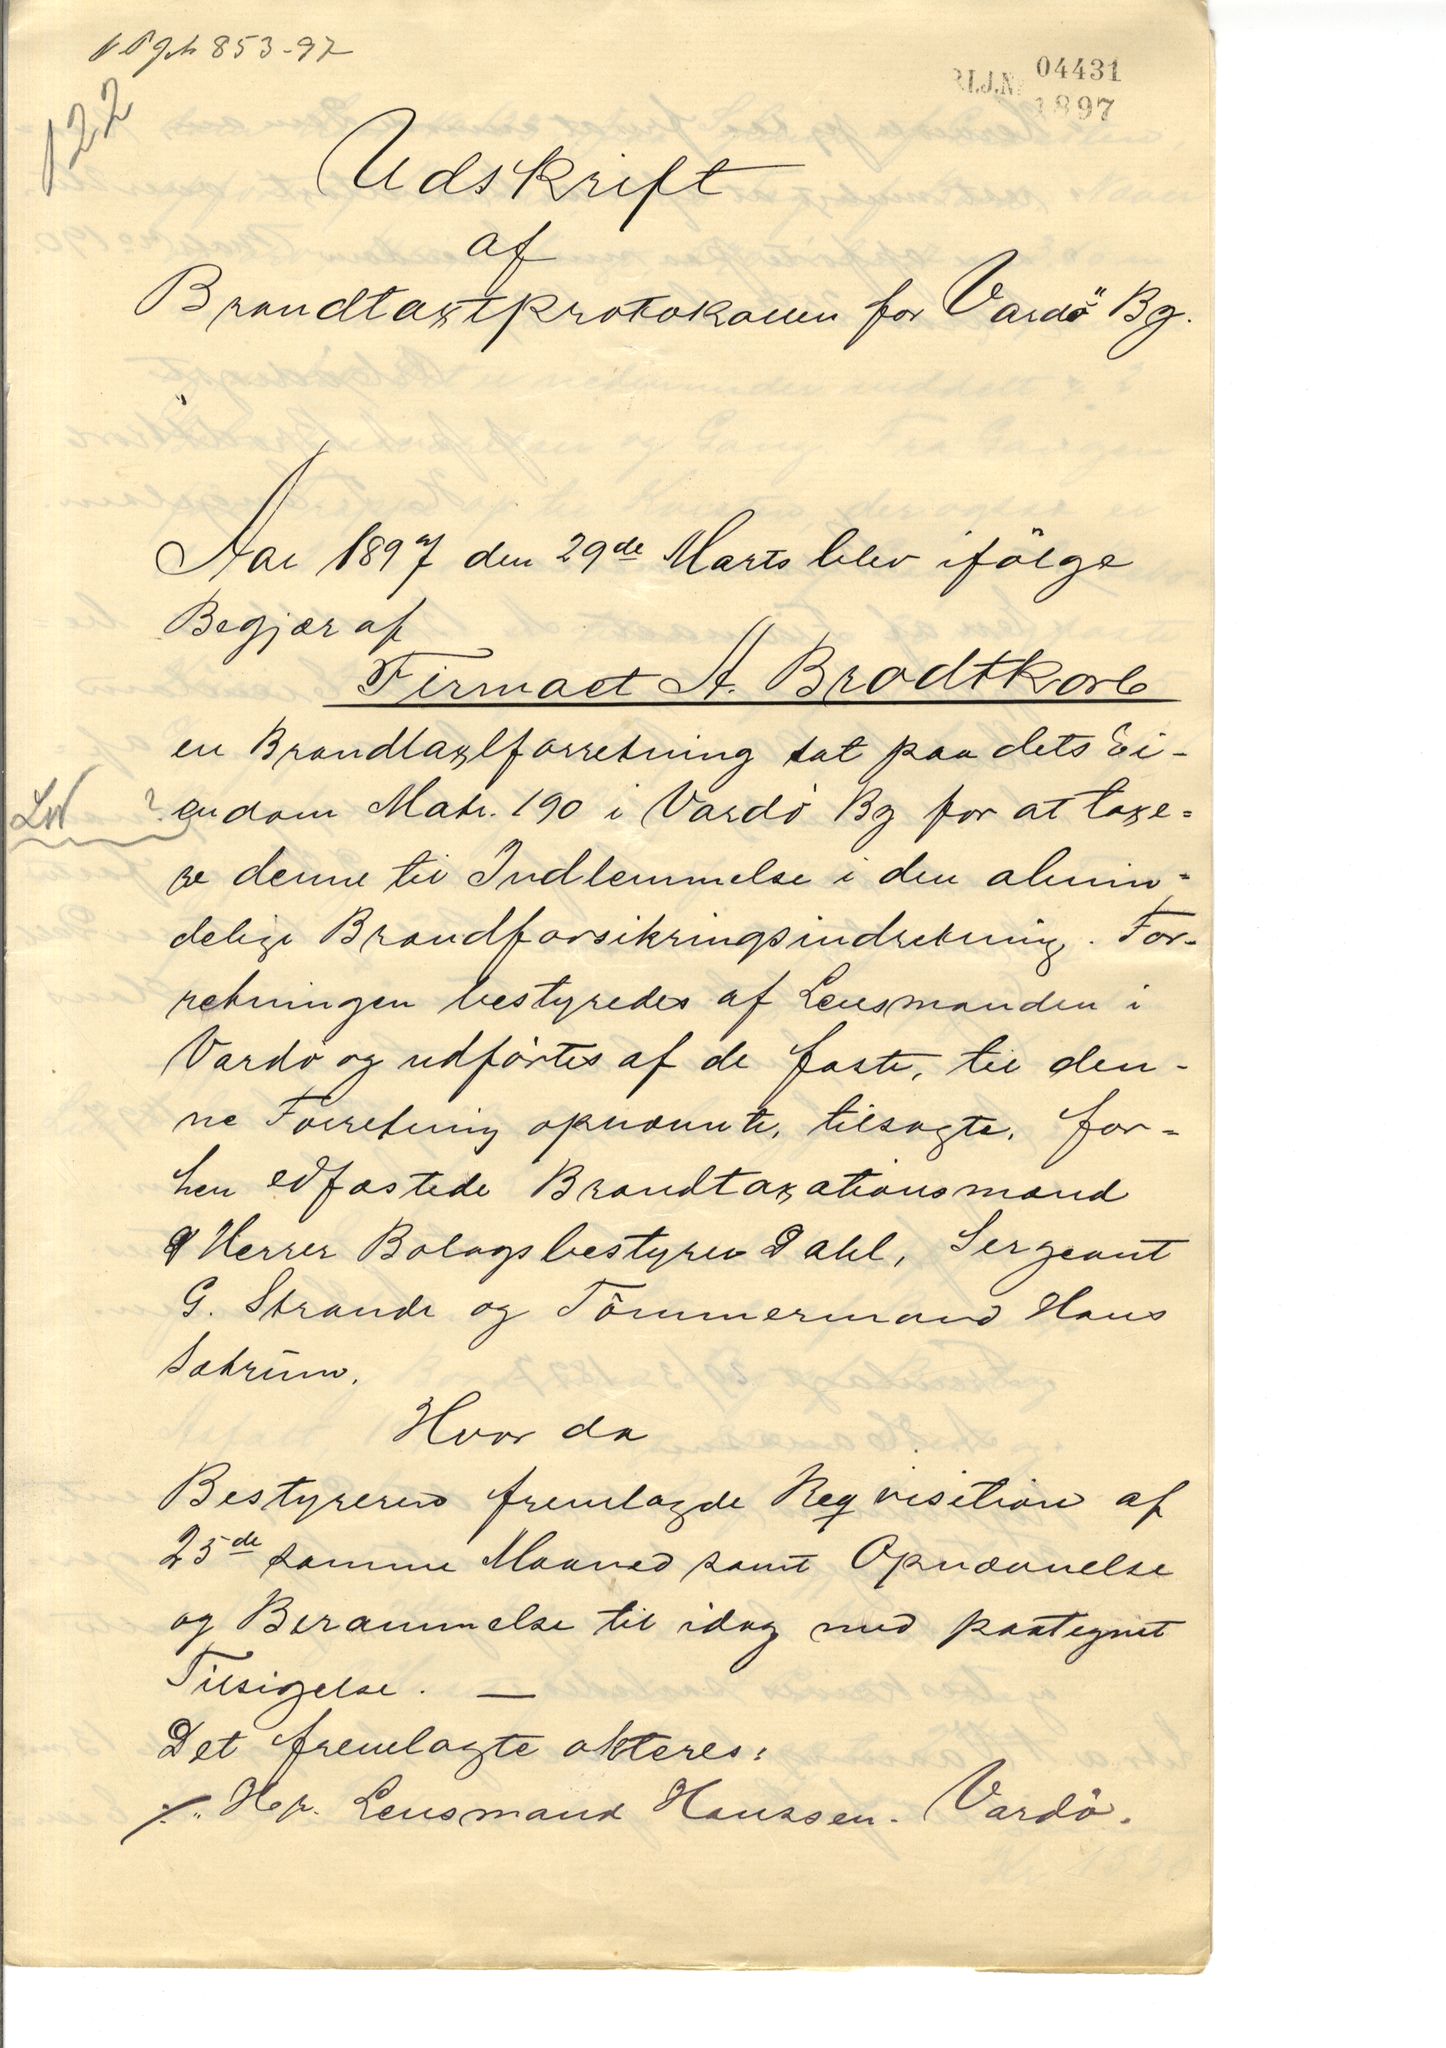 853-97
04431
RI.J.No
1897
122
Udskrift
af
Brandtaxtprotokollen for Vardö Bg.
Aar 1897 den 29de Marts blev ifölge
Begjær af
Firmaet A. Brodtkorb
en Brandtaxtforretning sat paa dets Ei-
endom Matr. 190 i Vardö Bg for at taxe=
re denne til Indlemmelse i den almin=
delige Brandforsikringsindretning. For-
retningen bestyredes af Lensmanden i
Vardö og udförtes af de faste, til den-
ne Forretning opnævnte, tilsagte, for=
hen edfæstede Brandtaxationsmænd
Herrer Bolagsbestyrer Dahl, Sergeant
G. Strande og Tömmermand Hans
Sætrum.
Hvor da
Bestyreren fremlagde Reqvisition af
25de samme Maaned samt Opnævnelse
og Berammelse til idag med paategnet
Tilsigelse. —
Det fremlagte akteres:
Hr. Lensmand Hanssen. Vardö.